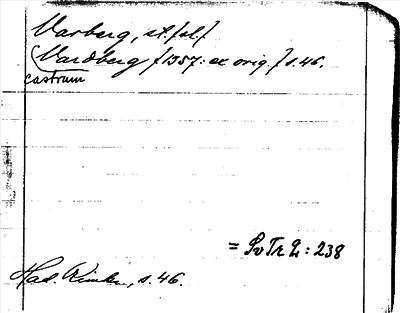 Varberg, st. [sl.]
Wardberg [1357: ex orig.] s. 46.
castrum
= SvTr 2: 238
Had. Rimkr., s. 46.